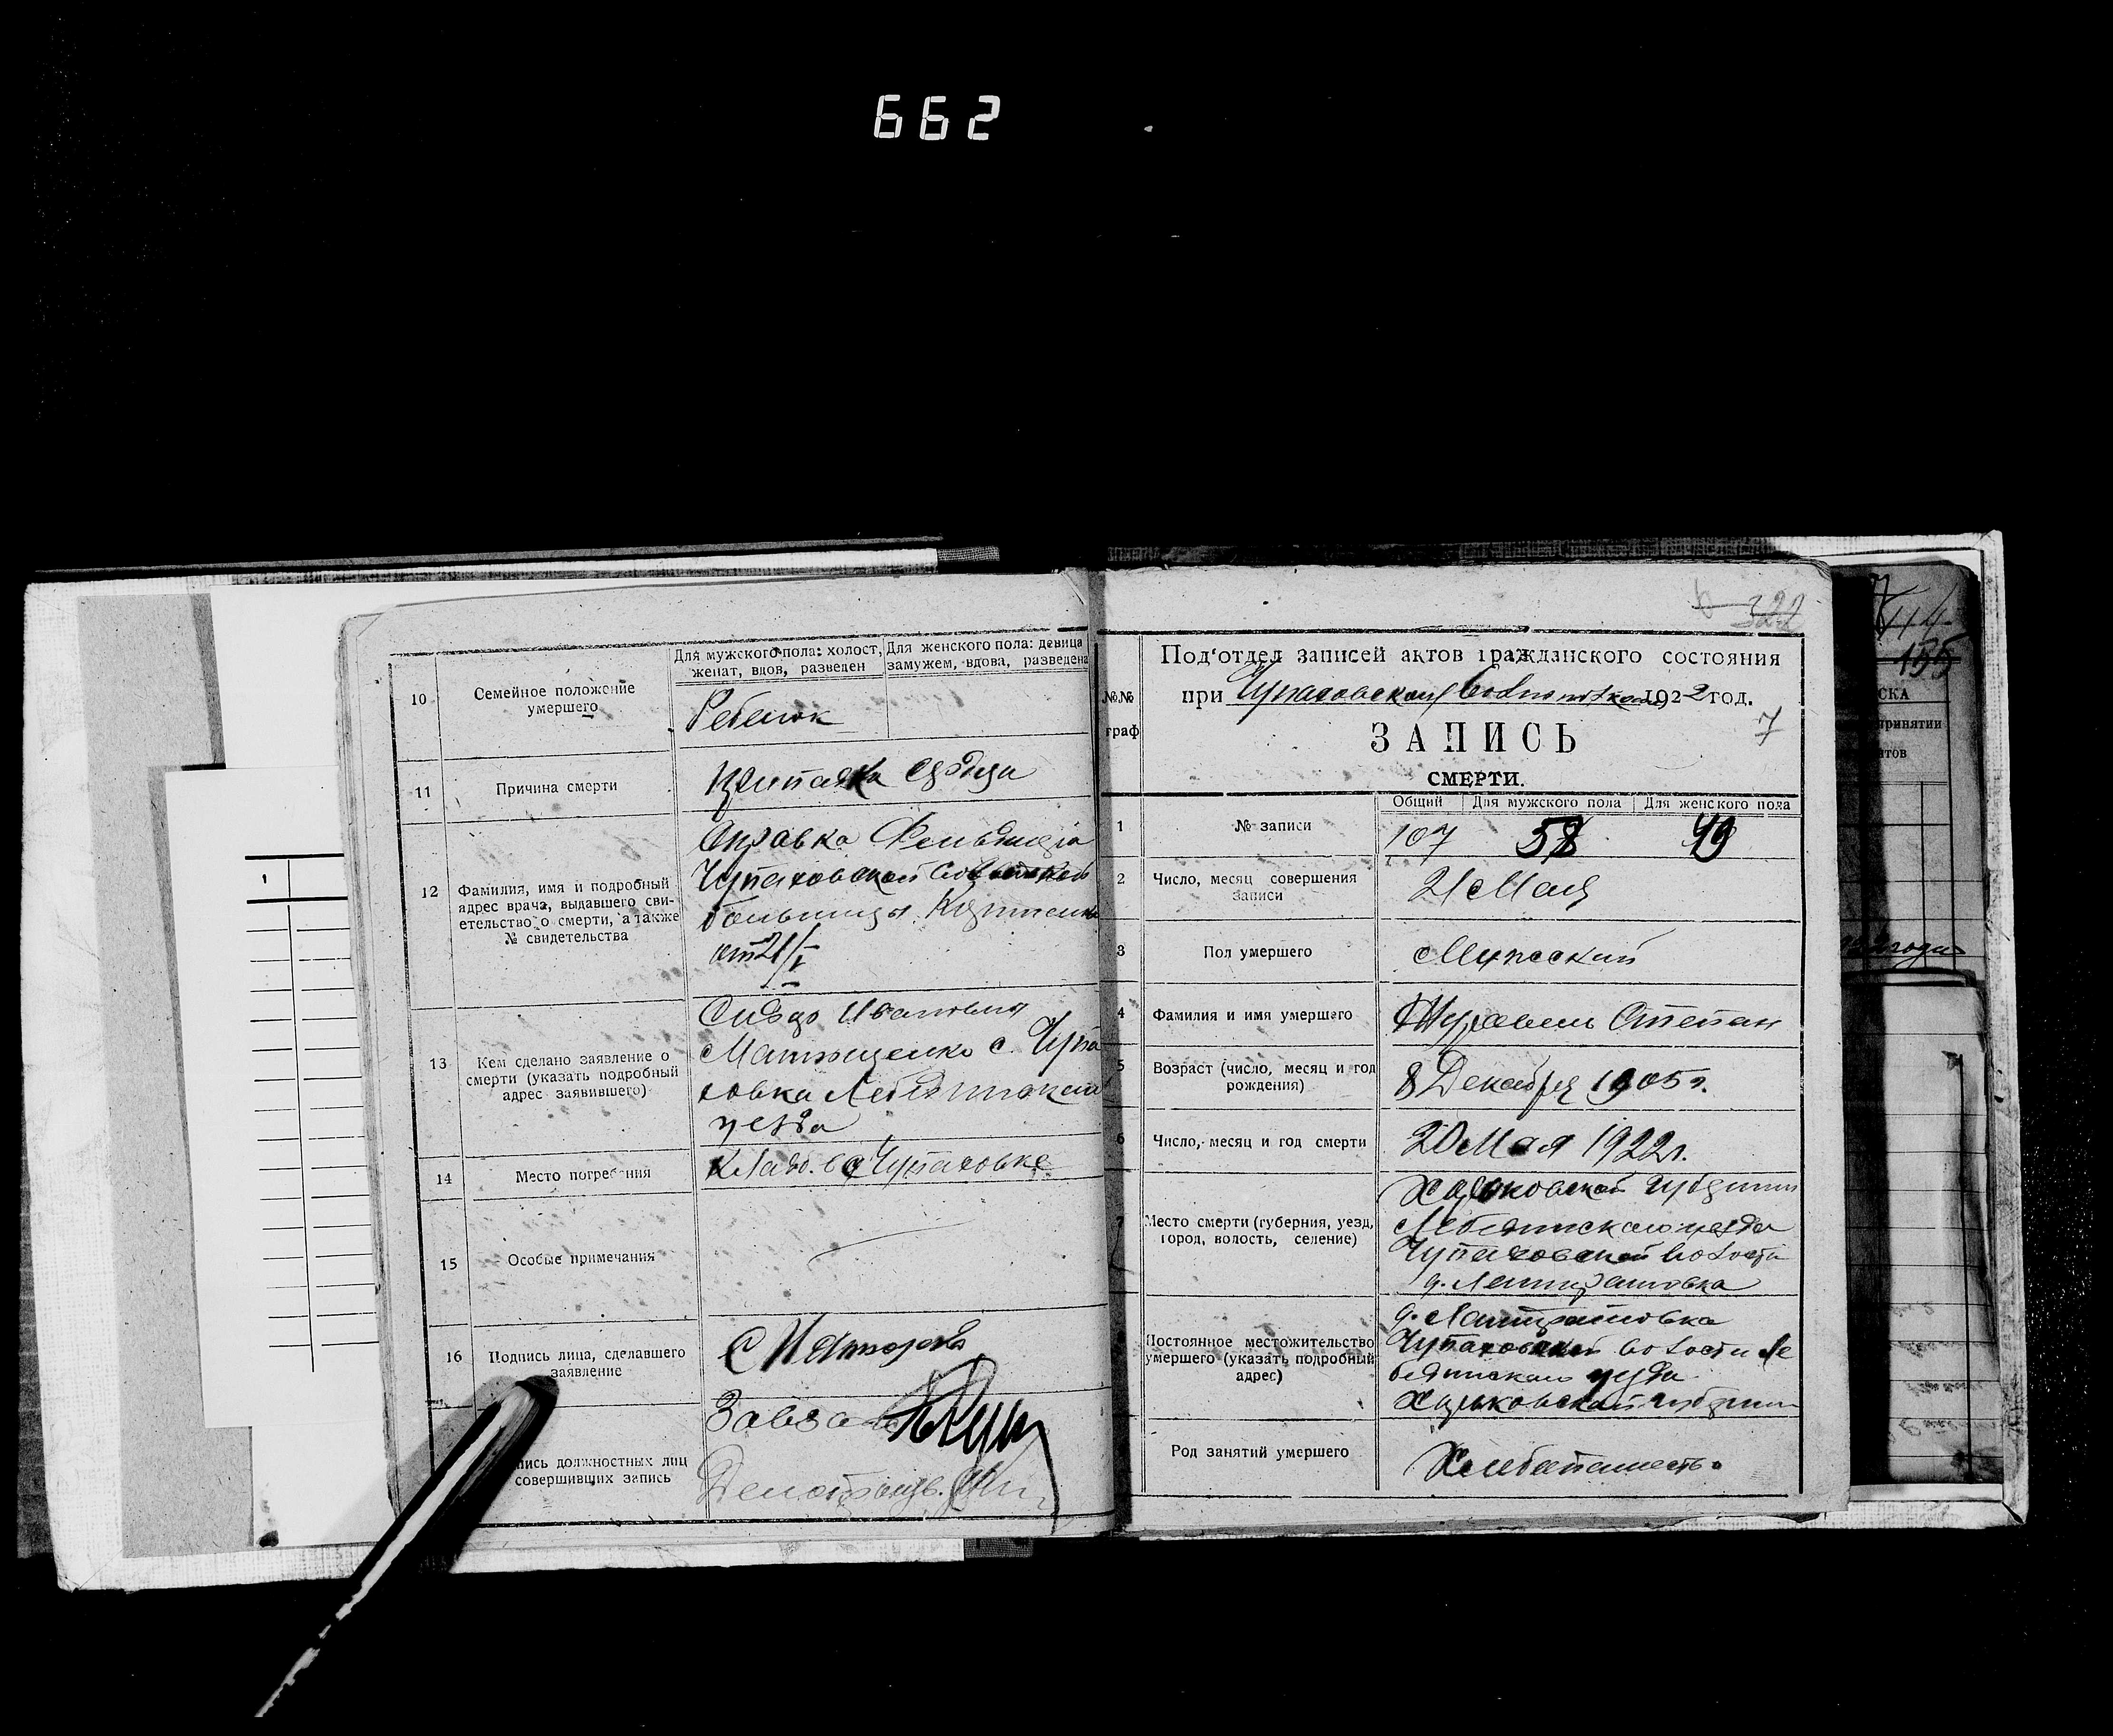 662
10
Семейное положение
умершего
Для мужского пола: холост,
женат, вдов, разведен
Для женского пола: девица
замужем, вдова, разведена
Ребенок
11
Причина смерти
сердца
12
Фамилия, имя и подробный
адрес врача, выдавшего сви-
етельство о смерти, а также
№ свидетельства
Справка Фельдшера
Чупаховской
больницы
от 21/V
13
Кем сделано заявление о
смерти (указать подробный
адрес заявившего)
Иванович
Матющенко с. Чупа
ховка Лебединского
уезда
14
Место погребения
Клад. с Чупаховке
15
Особые примечания
16
Подпись лица, сделавшего
заявление
пись должностных лиц
совершивших запись
322
№№
граф
Под'отдел записей актов гражданского состояния
при Чупаховском 1922 год.
7
ЗАПИСЬ
СМЕРТИ.
Общий
Для мужского пола
Для женского пола
1
№ записи
107 58 49
2
Число, месяц совершения
записи
21 Мая
3
Пол умершего
Мужеский
4
Фамилия и имя умершего
Журавель Степан
5
Возраст (число, месяц и год
рождения)
8 Декабря 1905 г.
6
Число, месяц и год смерти
20 Мая 1922 г.
7
Место смерти (губерния, уезд,
город, волость, селение)
Харьковской губернии
Лебединского уезда
Чупаховской волости
д.
Постоянное местожительство
умершего (указать подробный
адрес)
д.
Чупаховской волости Ле
бединского уезда
Харьковской губернии
Род занятий умершего
Хлебопашество
114
155
СКА
принятии
нтов
1